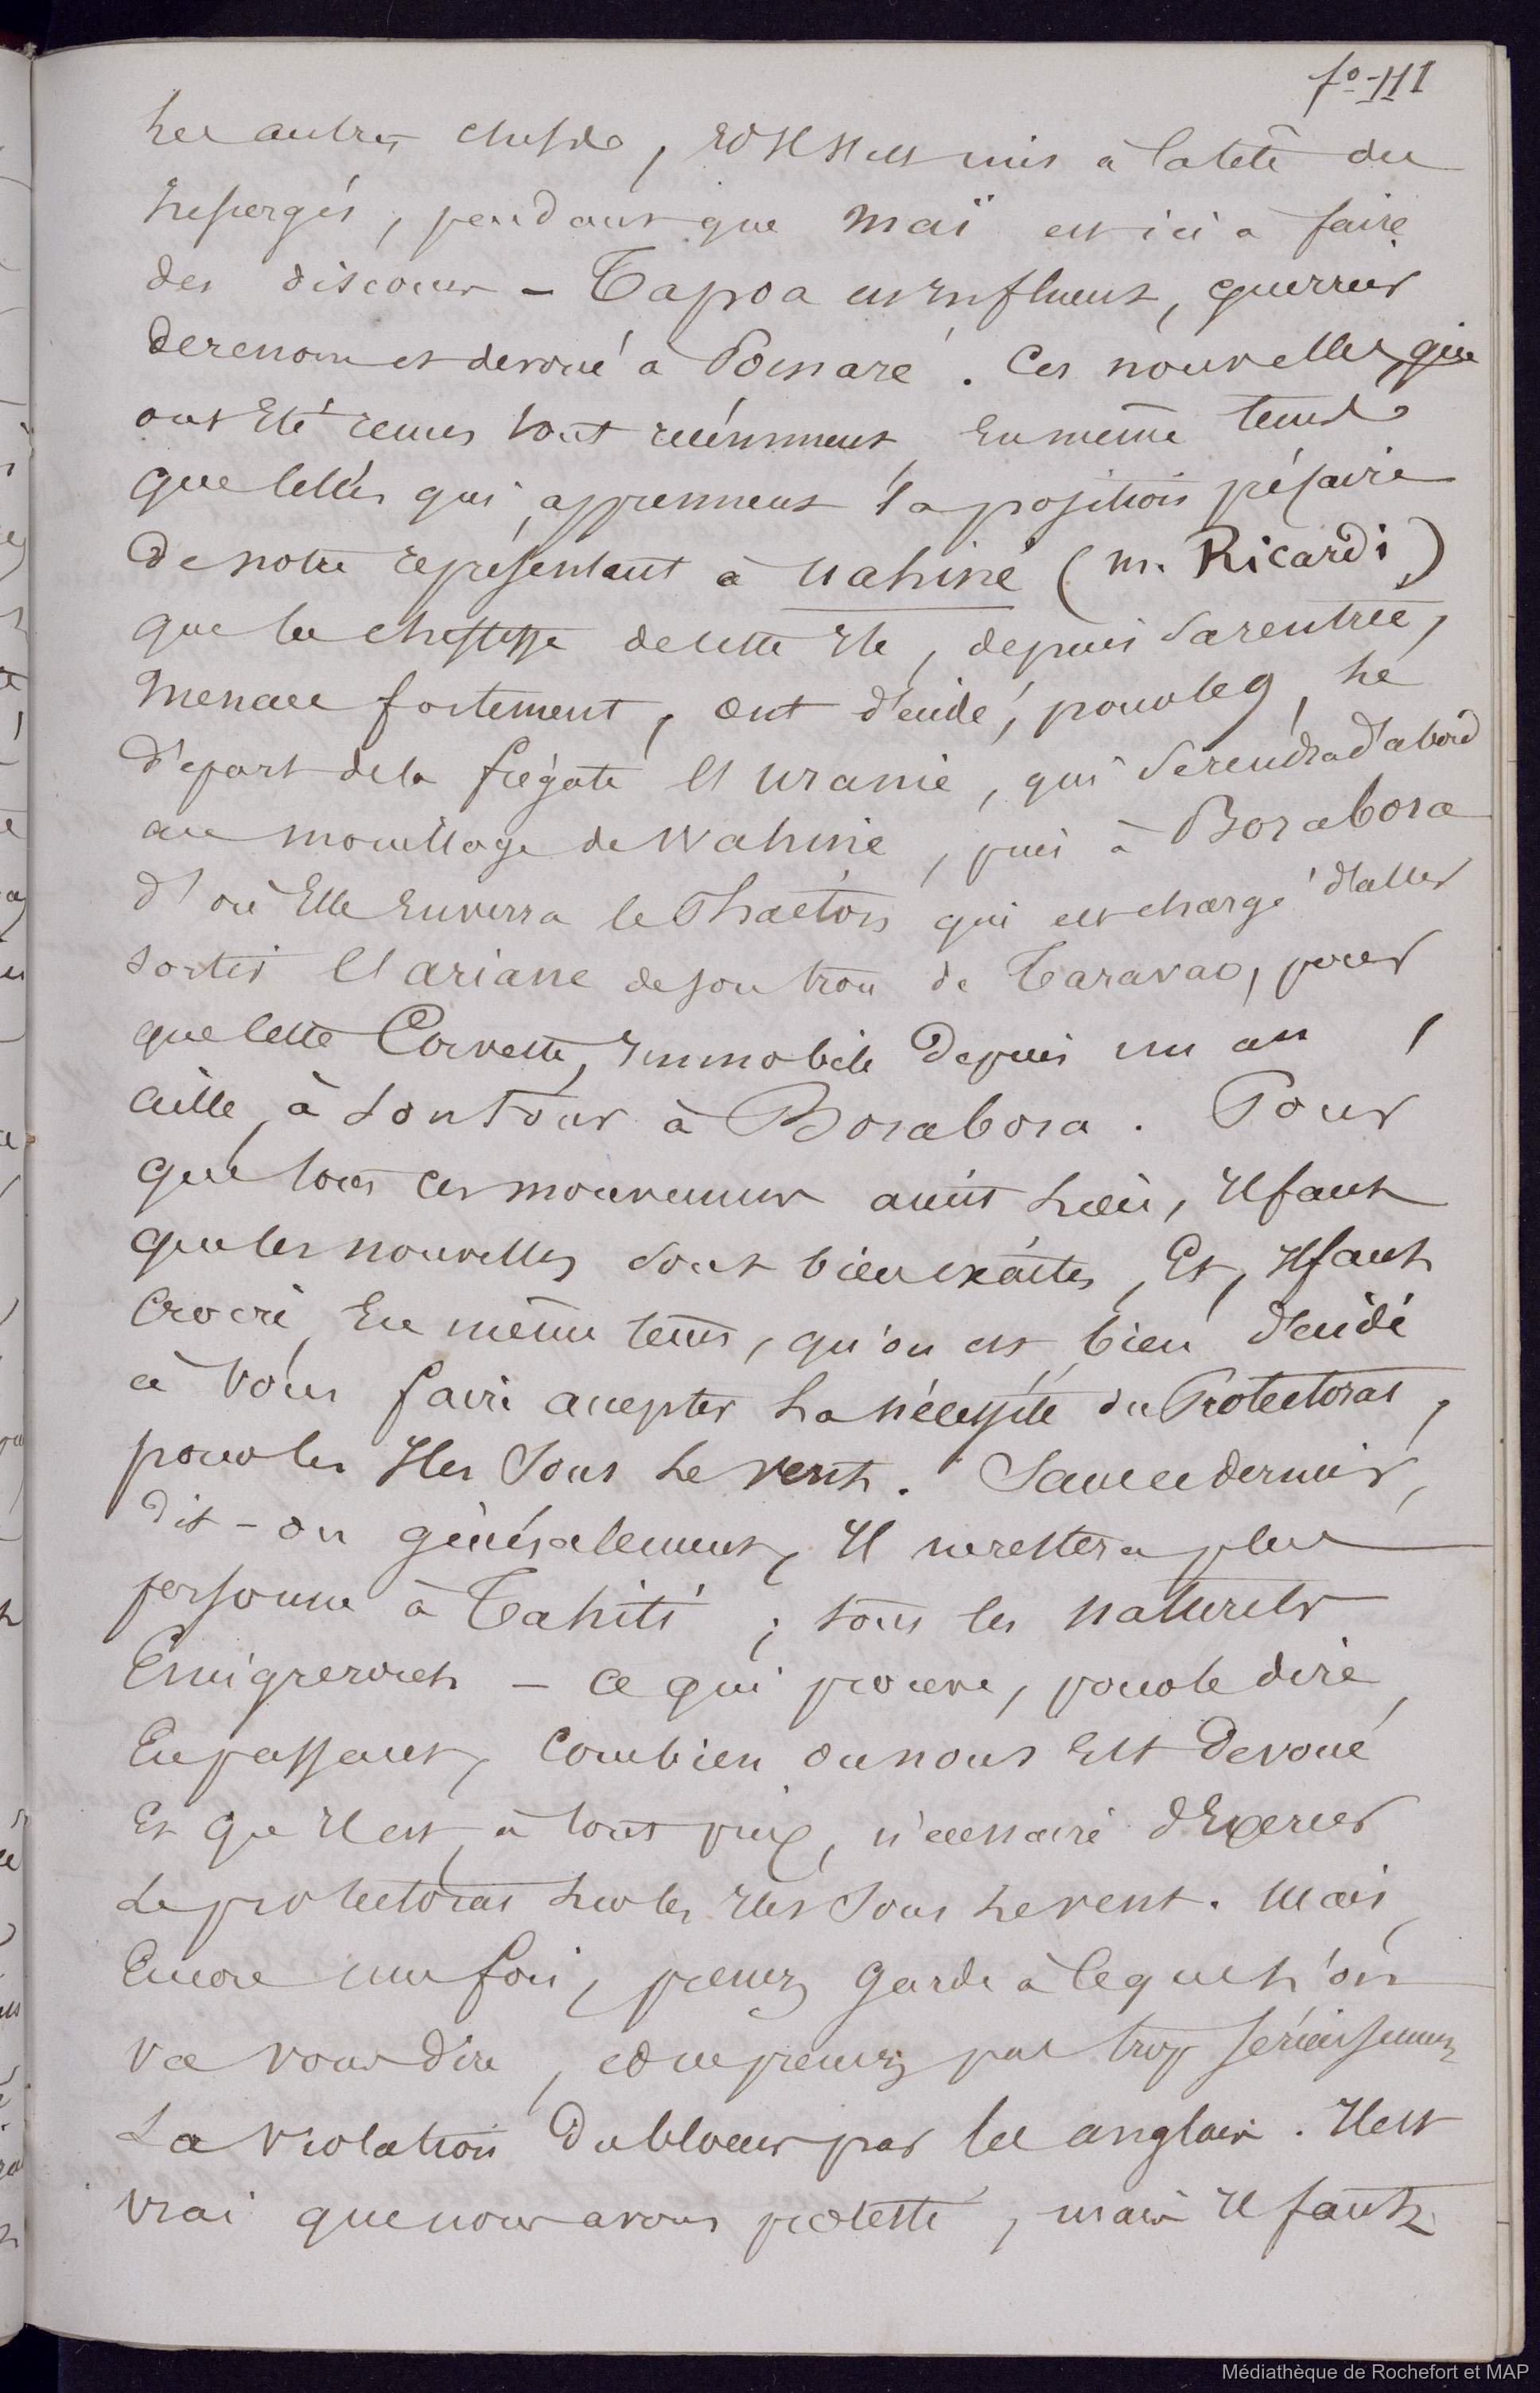 fo-111
Les autres chefs , Et Il s'est mis à la tête des
Insurgés, pendant que Maï est ici à faire
des discours - Tapoa est influent, guerrier
de renom et devoué à Pomaré. Ces nouvelles, qui
ont Eté reçues tout récemment, En même tems
que celles qui apprennent la position précaire
de notre représentant à Uahiné (M. Ricardi)
que la cheffesse de cette Ile, depuis sa rentrée,
menace fortement, ont décidé, pour le 9, le
départ de la frégate l'Uranie, qui se rendra d'abord
au mouillage de Wahiné, puis à Borabora
d'où Elle Enverra le Phaëton qui est chargé d'aller
sortir l'ariane de son trou de Taravao, pour
que cette Corvette, Immobile depuis un an,
aille, à son tour à Borabora. Pour
que tous ces mouvemens aient lieu, Il faut
que les nouvelles soient bien exactes, Et, Il faut
Croire En même tems, qu'on est bien décidé
à vous faire accepter la nécessité du Protectorat,
pour les Iles Sous le vent. Sans ce dernier,
dit-on généralement, Il ne restera plus
personne à Tahiti ; tous les naturels
Emigreront - ce qui prouve, pour le dire
En passant, combien on nous Est devoué
Et qu'Il est, à tout prix, nécessaire d'Exercer
Le protectorat sur les Iles Sous le vent. Mais,
Encore une fois, prenez garde à ce que l'on
va vous dire, et ne prenez pas trop sérieusement
La violation du blocus par les anglais. Il est
vrai que nous avons protesté, mais Il faut
Médiathèque de Rochefort et MAP